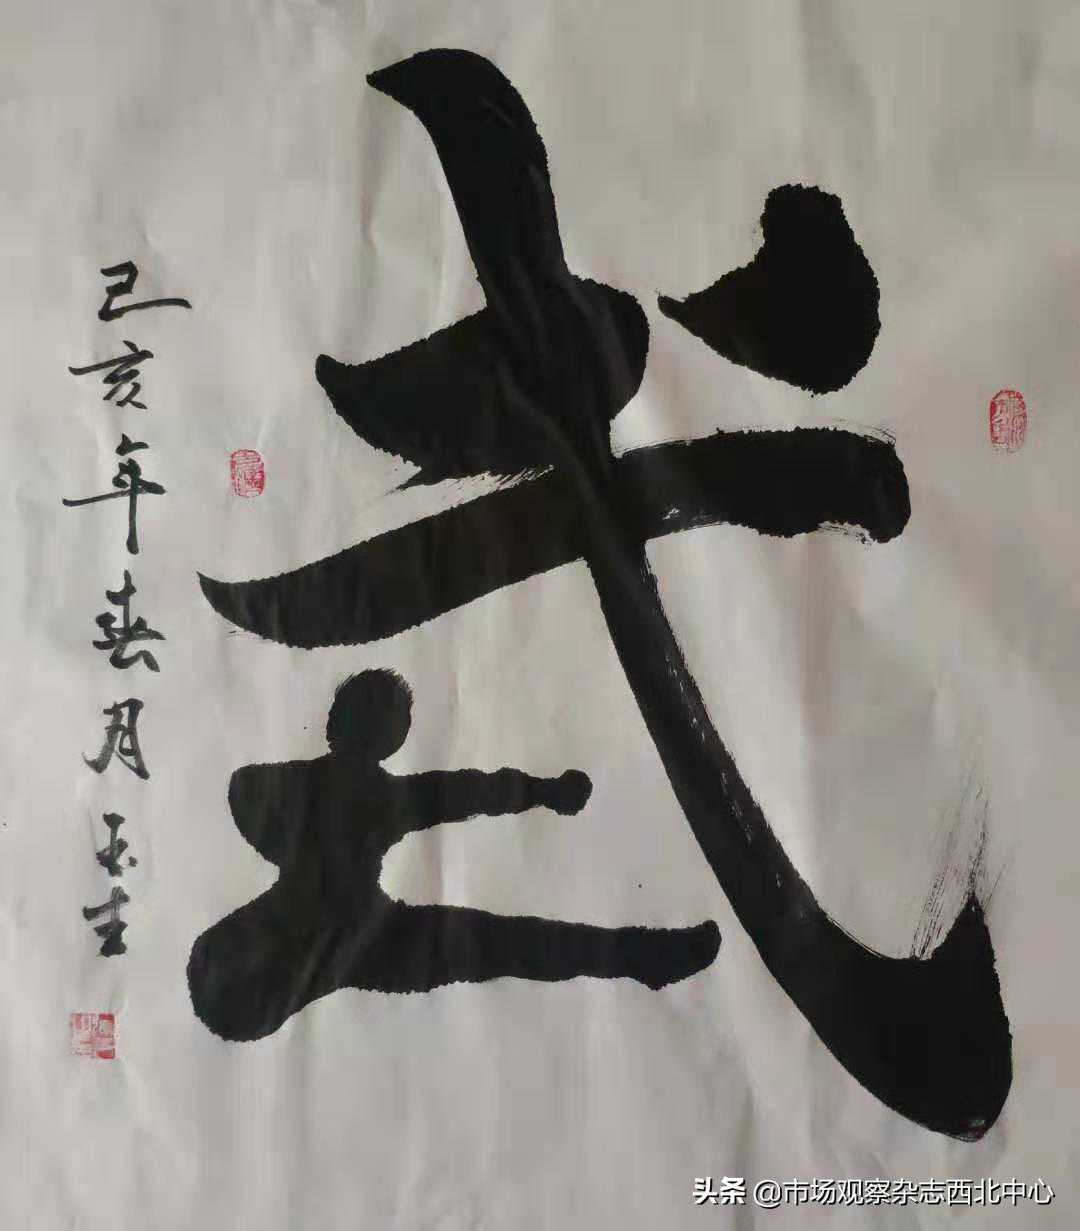 武
己亥年春月玉圭
头条 @市场观察杂志西北中心